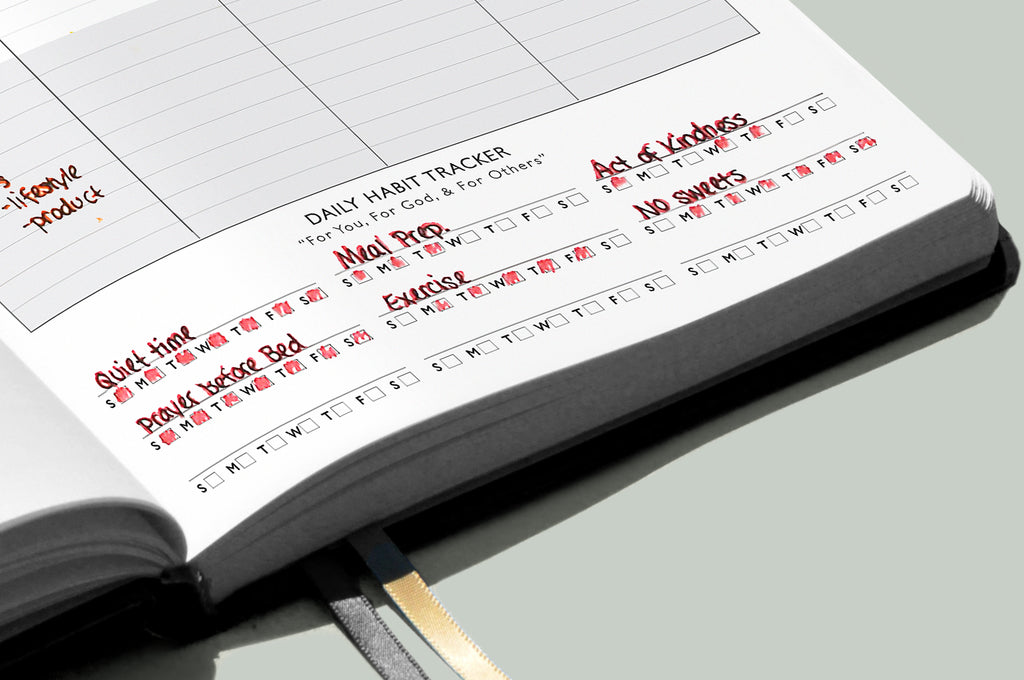 -lifestyle
-product
DAILY HABIT TRACKER
"For You, For God, & For Others"
Quiet time
S M T W T F S
Meal Prep.
S M T W T F S
Act of Kindness
S M T W T F S
Prayer before Bed
S M T W T F S
Exercise
S M T W T F S
No sweets
S M T W T F S
S M T W T F S
S M T W T F S
S M T W T F S